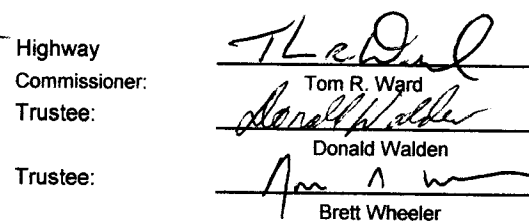 Highway
Commissioner:
Tom R. Ward
Trustee:
Donald Walden
Donald Walden
Trustee:
Brett Wheeler